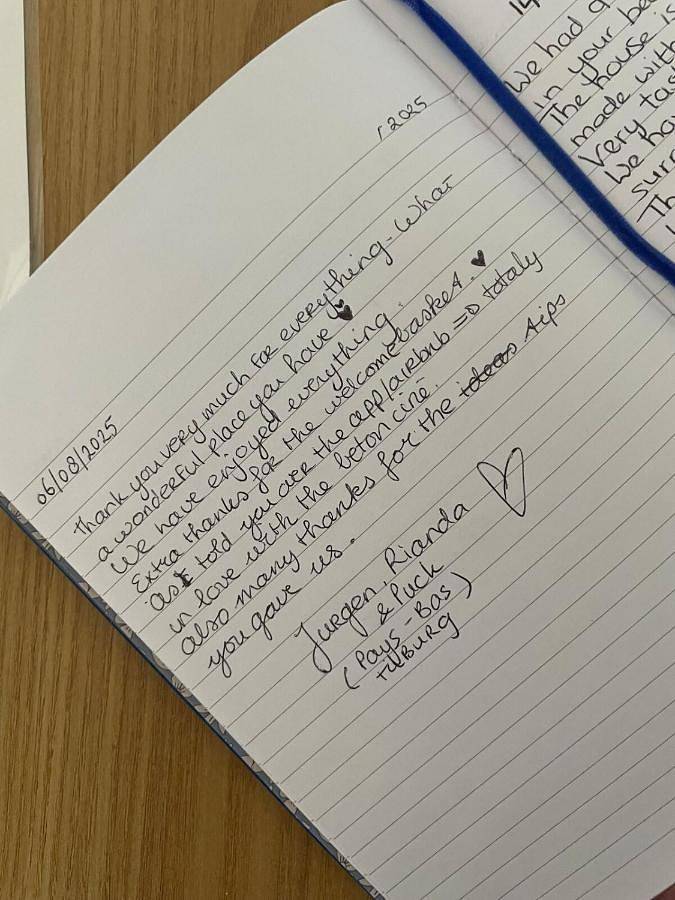 06/08/2025
Thank you very much for everything - What
a wonderful place you have
We have enjoyed everything.
Extra thanks for the welcomebasket.
as I told you over the app/airbnb => totaly
in love with the beton ciré.
also many thanks for the ideas tips
you gave us.
Jurgen, Rianda
& Puck
(Pays-Bas)
TILBURG
2025
14
We had a
in your
The house is
made with
Very
We